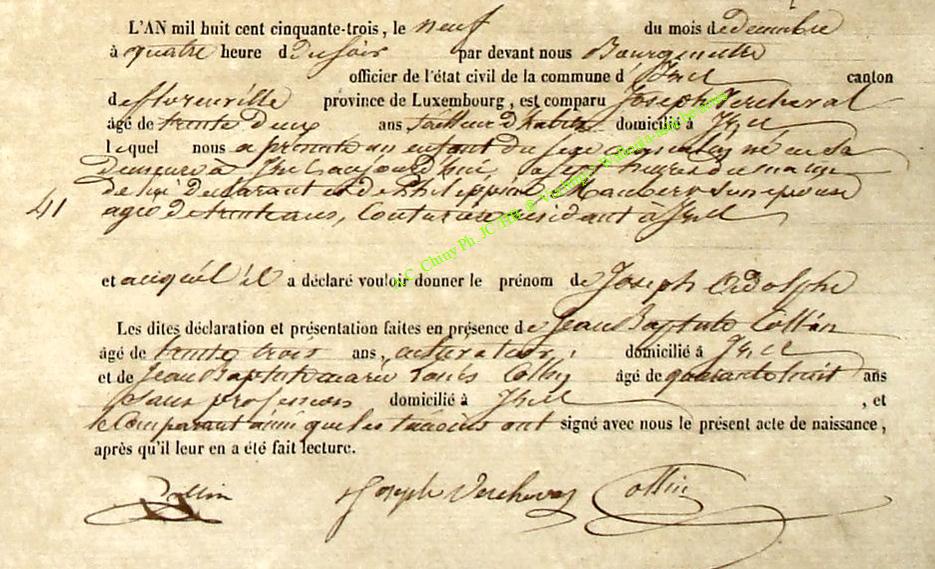 L'AN mil huit cent cinquante-trois, le neuf du mois de decembre
à quatre heure du soir par devant nous Bourgmestre
officier de l'état civil de la commune d' Izel canton
de florenville province de Luxembourg, est comparu Joseph Vercheval
âgé de trente deux ans tailleur d'habits domicilié à Izel
lequel nous a présenté un enfant du sexe masculin né en sa
Demeure à Izel aujourd'hui, a sept heures du matin
de lui Declarant et de Philippine son epouse
agée de trente ans, Couturière residant à Izel
41
et auquel il a déclaré vouloir donner le prénom de Joseph Adolphe
Les dites déclaration et présentation faites en présence de Jean Baptiste Collin
âgé de trente trois ans, cultivateur, domicilié à Izel
et de Jean Baptiste marie Louis Collin âgé de quarante huit ans
Sans profession domicilié à Izel , et
le Comparant ainsi que les témoins ont signé avec nous le présent acte de naissance,
après qu'il leur en a été fait lecture.
Collin Joseph Vercheval Collin